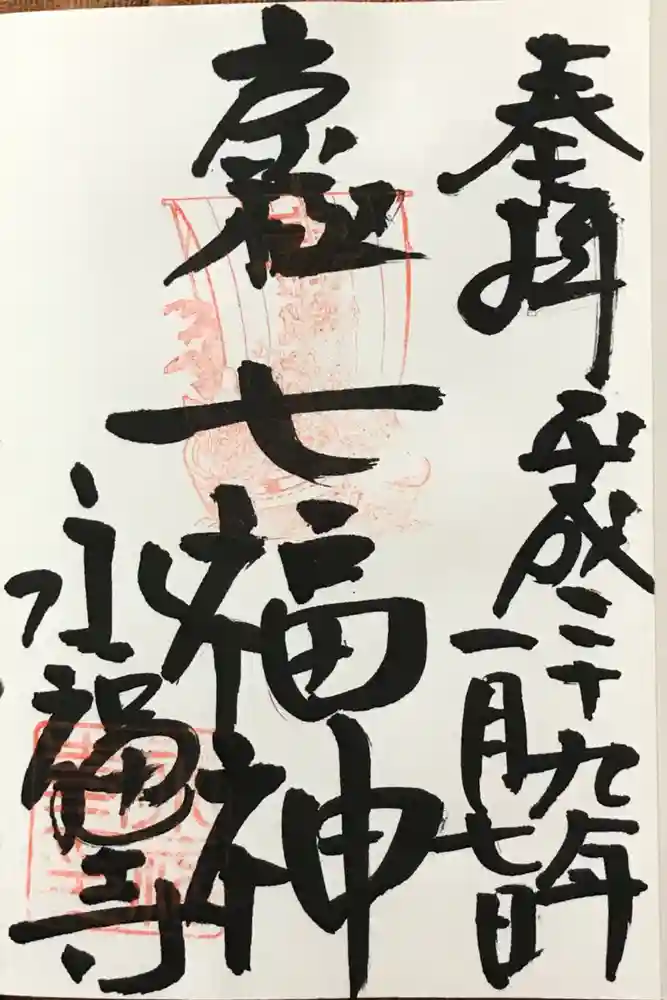 奉拝
平成二十九年
一月七日
七福神
永福寺